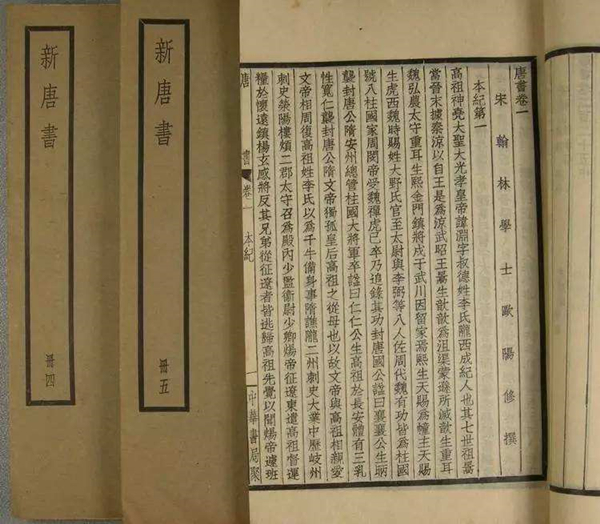 唐書卷一
宋翰林學士歐陽修撰
本紀第一
高祖神堯大聖大光孝皇帝諱淵字叔德姓李氏隴西成紀人也其七世祖暠
當晉末據秦涼以自王是爲涼武昭王暠生歆歆爲沮渠蒙遜所滅歆生重耳
魏弘農太守重耳生熙金門鎮將戍于武川因留家焉熙生天賜爲幢主天賜
生虎西魏時賜姓大野氏官至太尉與李弼等八人佐周代魏有功皆爲柱國
號八柱國家周閔帝受魏禪虎已卒乃追錄其功封唐國公諡曰襄襄公生昞
襲封唐公隋安州總管柱國大將軍卒諡曰仁仁公生高祖於長安體有三乳
性寬仁襲封唐公隋文帝獨孤皇后高祖之從母也以故文帝與高祖相親愛
文帝相周復高祖姓李氏以爲千牛備身事隋譙隴二州刺史大業中歷岐州
刺史滎陽樓煩二郡太守召爲殿內少監衛尉少卿煬帝征遼東遣高祖督運
糧於懷遠鎮楊玄感將反其兄弟從征遼者皆逃歸高祖先覺以聞煬帝遽班
唐書 卷一 本紀 一 中華書局聚
新唐書 冊五
新唐書 冊四